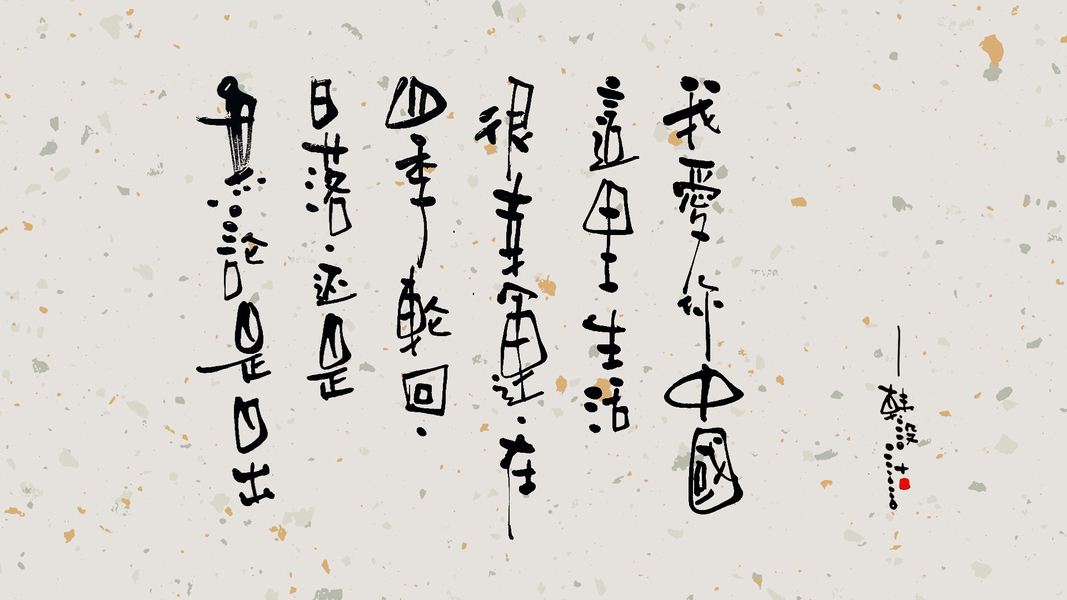 我愛你中國
這里生活
很幸運還·在
四季輪回·
日落·还是
無論是日出